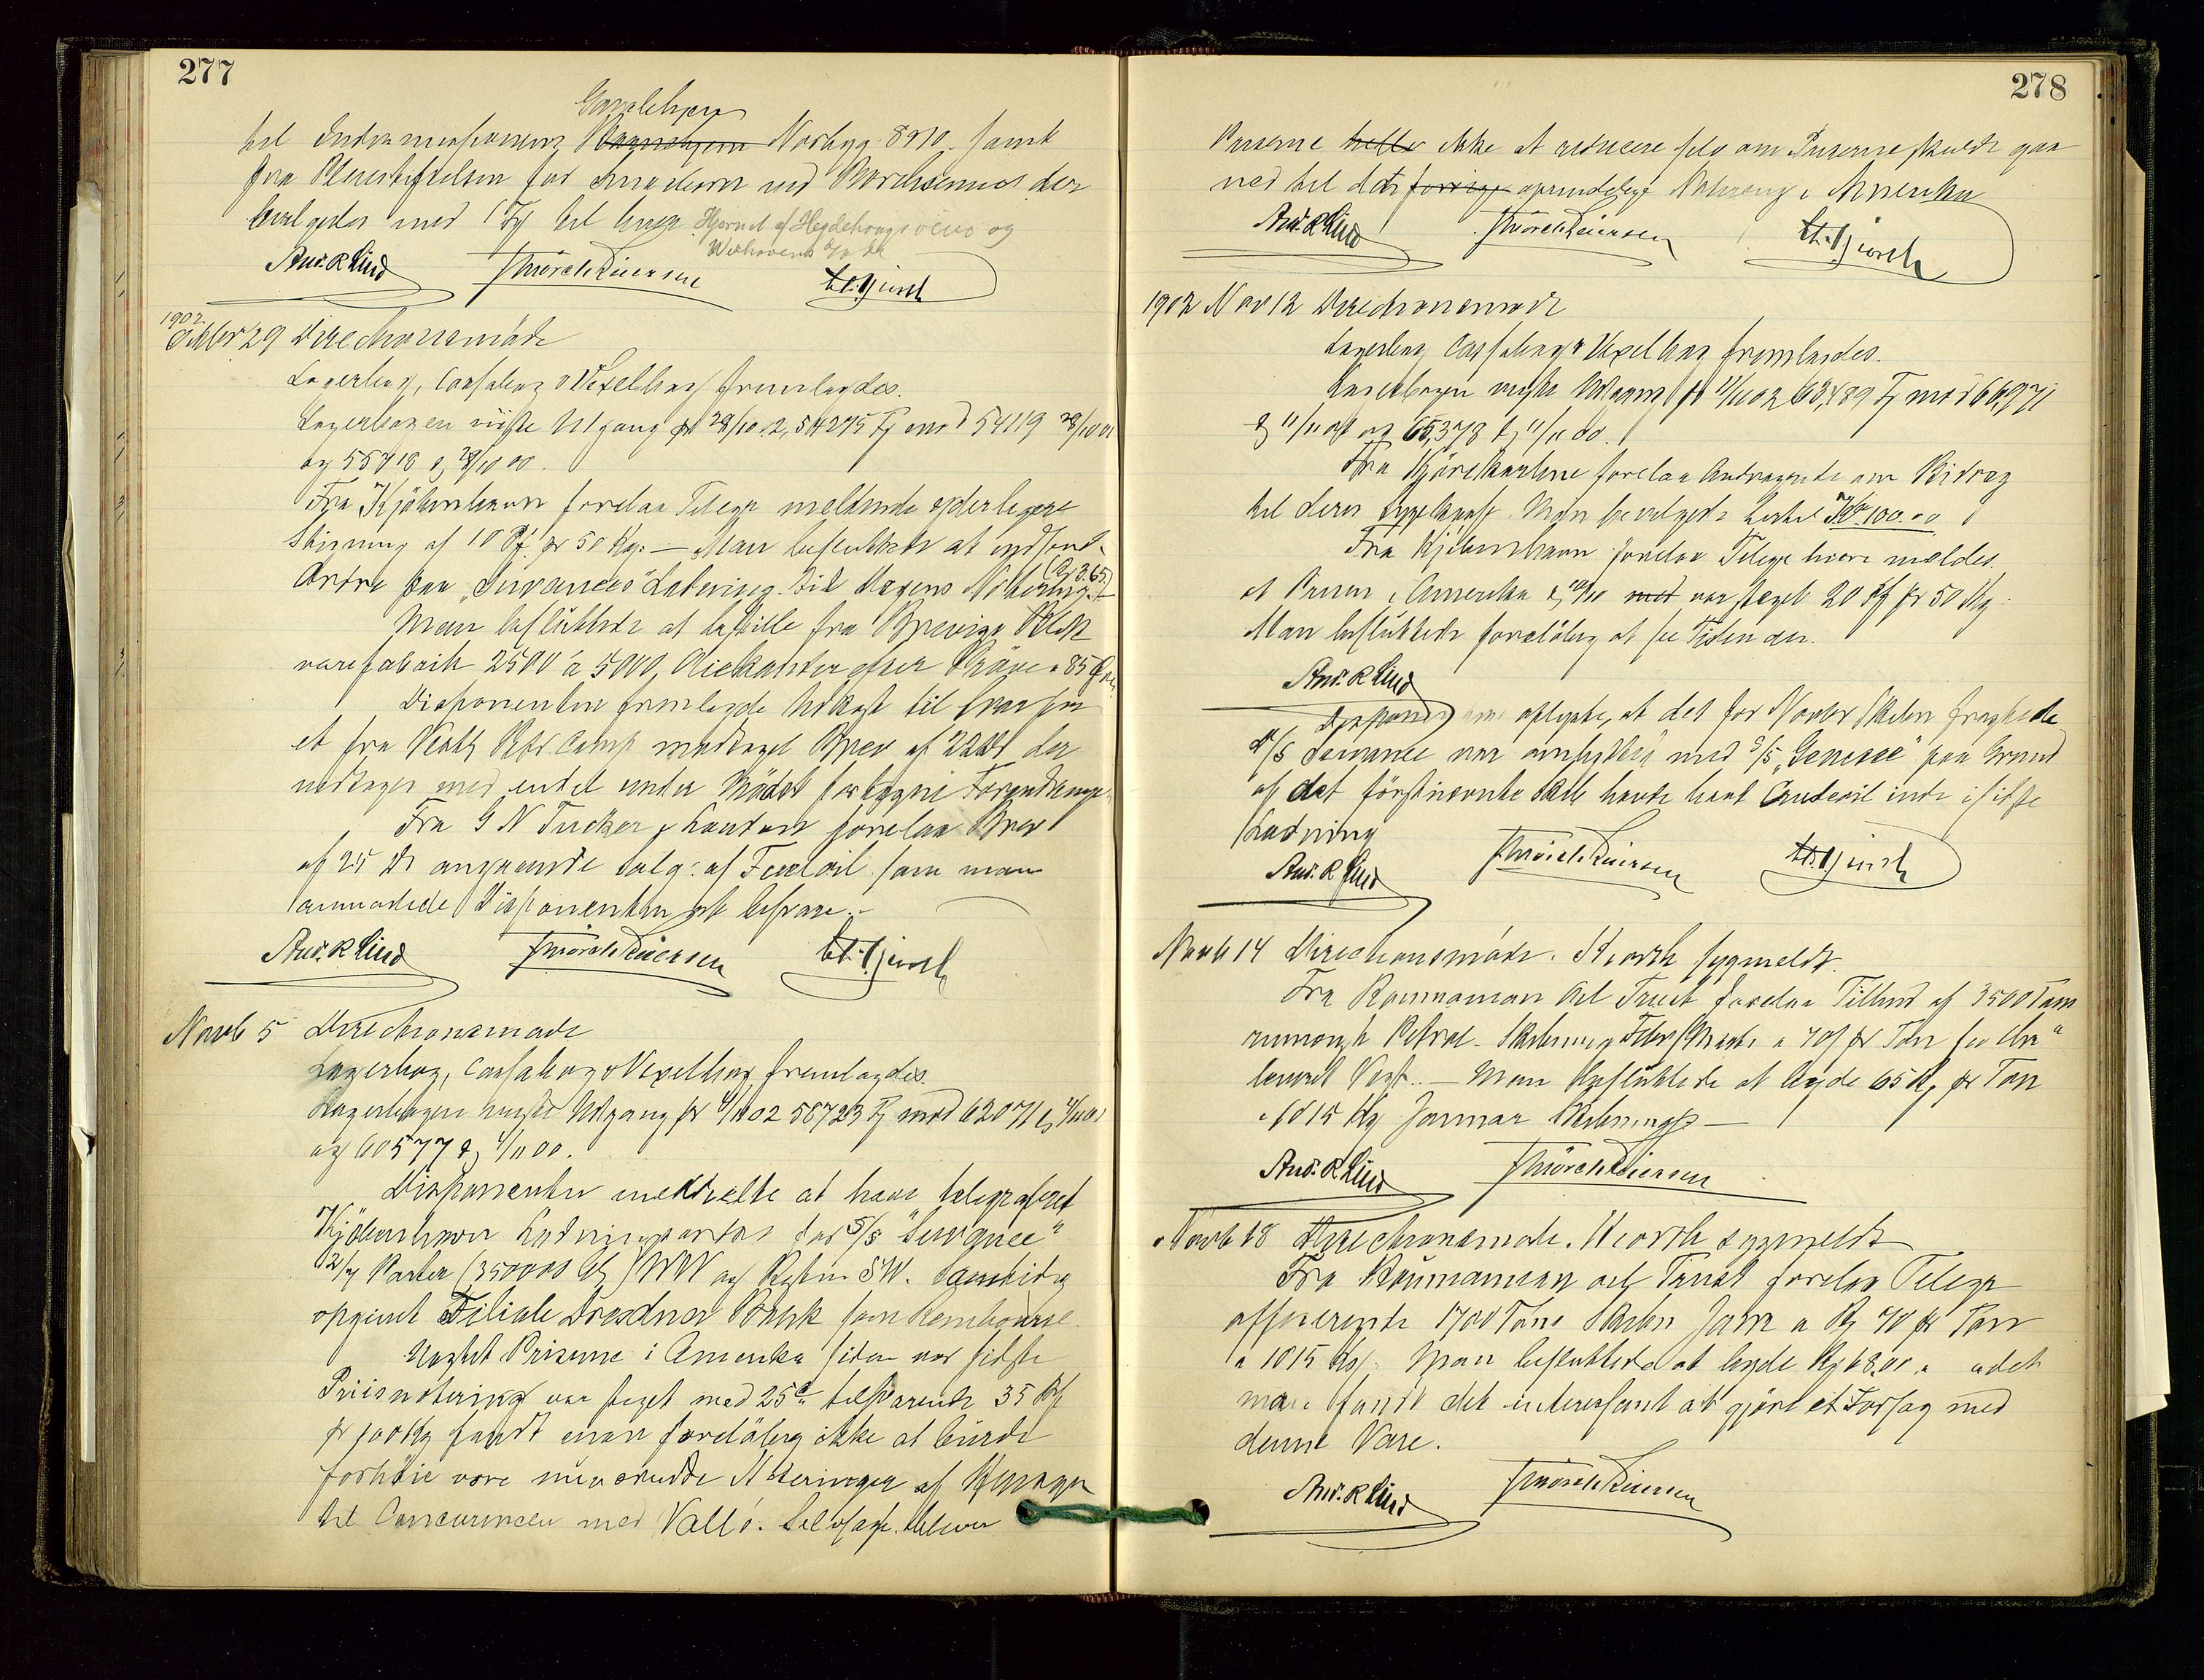 277
Gamlehjem
til Indremissionens Barnehjem Norbyg 8910. samt
fra Pleiestiftelsen for Smaabørn ved Borchsenius der
bevilgedes med 1 Fg til hver Hjørnet af Hegdehaugsveien og
Welhavens
And. R Lind Thv Mörch Reiersen Chr. Hjorth
1902
Oktbr 29 Direchionsmöde
Lagerbog, Cassabog & Vexelbog fremlagdes.
Lagerbogen viiste Udgang pr 28/10 02, 54275 Fg mod 54119 28/10 01
og 55718 28/10 00.
Fra Kjöbenhavn forelaa Telegr meldende yderligere
Stigning af 10 Pf. pr 50 Kg. — Man besluttede at indsende
Ordre paa "Suwanees" Ladning til Dagens Notering. (Rg 3.65)
Man besluttede at bestille fra Brevigs Blik
varefabrik 2500 à 5000, Oliekander efter Pröve a 85 Öre.
Disponenten fremlagde Udkast til Svar paa
et fra Vestl. Petr. Comp. modtaget Brev af 22 ds der
vedtages med endel under Mödet foretagne Forandringer
Fra G N Tucker, London forelaa Brev
af 25 ds angaaende Salg af Fueloil som man
anmodede Disponenten at besvare. -
And. R Lind Thv Mörch Reiersen Chr. Hjorth
Novb 5 Direchionsmöde
Lagerbog, Cassabog & Vexelbog fremlagdes.
Lagerbogen viiste Udgang pr 4/11 02 56723 Fg mod 62071 4/11 01
og 60577 4/11 00.
Disponenten meddelte at have telegraferet
Kjöbenhavn Ladningsordre for S/S "Suwanee"
2/7 Parter (350000 Kg) WW og Resten SW. Samtidig
opgivet Filiale Dresdner Bank som Rembourse.
Uagtet Priserne i Amerika siden vor sidste
Priisnotering var steget med 25 c tilsvarende 35 Pf
pr 100 Kg fandt man forelöbig ikke at burde
forhöie vore nuværende Noteringer af Hensyn
til Concurrencen med Vallö.
278
Priserne heller ikke at reducere selv om Priserne skulde gaa
ned til det forrige oprindelige Notering i Amerika
And. R Lind Thv Mörch Reiersen Chr. Hjorth
1902 Nov 12 Direchionsmöde
Lagerbog Cassabog & Vexelbog fremlagdes.
Lagerbogen viiste Udgang pr 11/11 02 63,489 Fg mod 66971
11/11 01 og 65,378 11/11 00.
Fra Kjörekarlene forelaa Andragende om Bidrag
til deres Sygekasse. Man bevilgede hertil Kr. 100.00
Fra Kjöbenhavn forelaa Telegr hvori meldes
at Prisen i Amerika med var steget 20 Pf pr 50 Kg
Man besluttede forelöbig at see Tiden an.
And. R Lind
Disponenten oplyste, at det for Novbr Skibn fragtede
S/S Suwanee var ombyttet med S/S "Genesee" paa Grund
af det förstnævnte Skib havde havt Crudeoil inde i sidste
Ladning
And. R Lind Thv Mörch Reiersen Chr. Hjorth
Novb 14 Direchionsmöde. Hjorth sygmeldt.
Fra Roumanian Oil Trust forelaa Tilbud af 3500 Tons
rumænsk Petrol. Skibning Febr/Marts a 70/ pr Ton
leveret Vægt. — Man besluttede at byde 65 Rg pr Ton
a 1015 Kg Januar Skibning —
And. R Lind Thv Mörch Reiersen
Novb 18 Direchionsmöde. Hjorth sygmeldt
Fra Roumanian Oil Trust forelaa Telegr
offererende 1700 Tons Skibn Janr a Rg 70 pr Ton
a 1015 Kg. Man besluttede at byde Rg 68.00, idet
man fandt det interessant at gjöre et Forsøg med
denne Vare.
And. R Lind Thv Mörch Reiersen